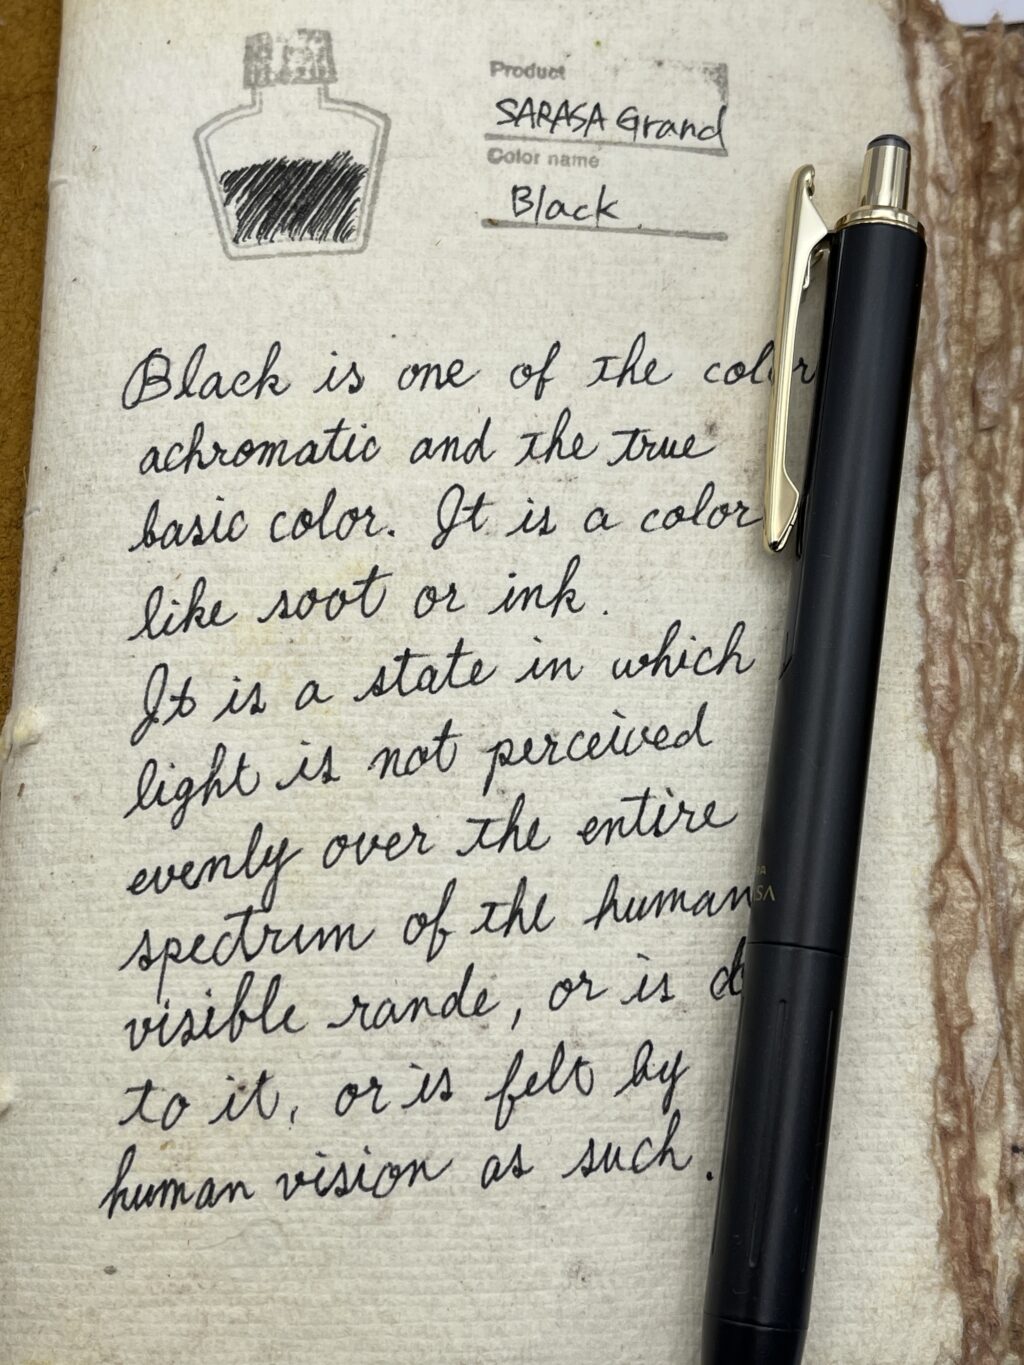 Product
SARASA Grand
Color name
Black
Black is one of the color
achromatic and the true
basic color. It is a color
like soot or ink.
It is a state in which
light is not perceived
evenly over the entire
spectrum of the human
visible rande, or is
to it, or is felt by
human vision as such.